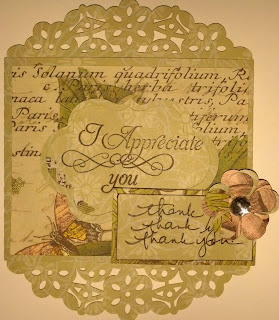 Solanum quadrifolium, R
Paris, herba trifoli
naca
Paris,
Paris
I Appreciate
you
thank
thank
thank you